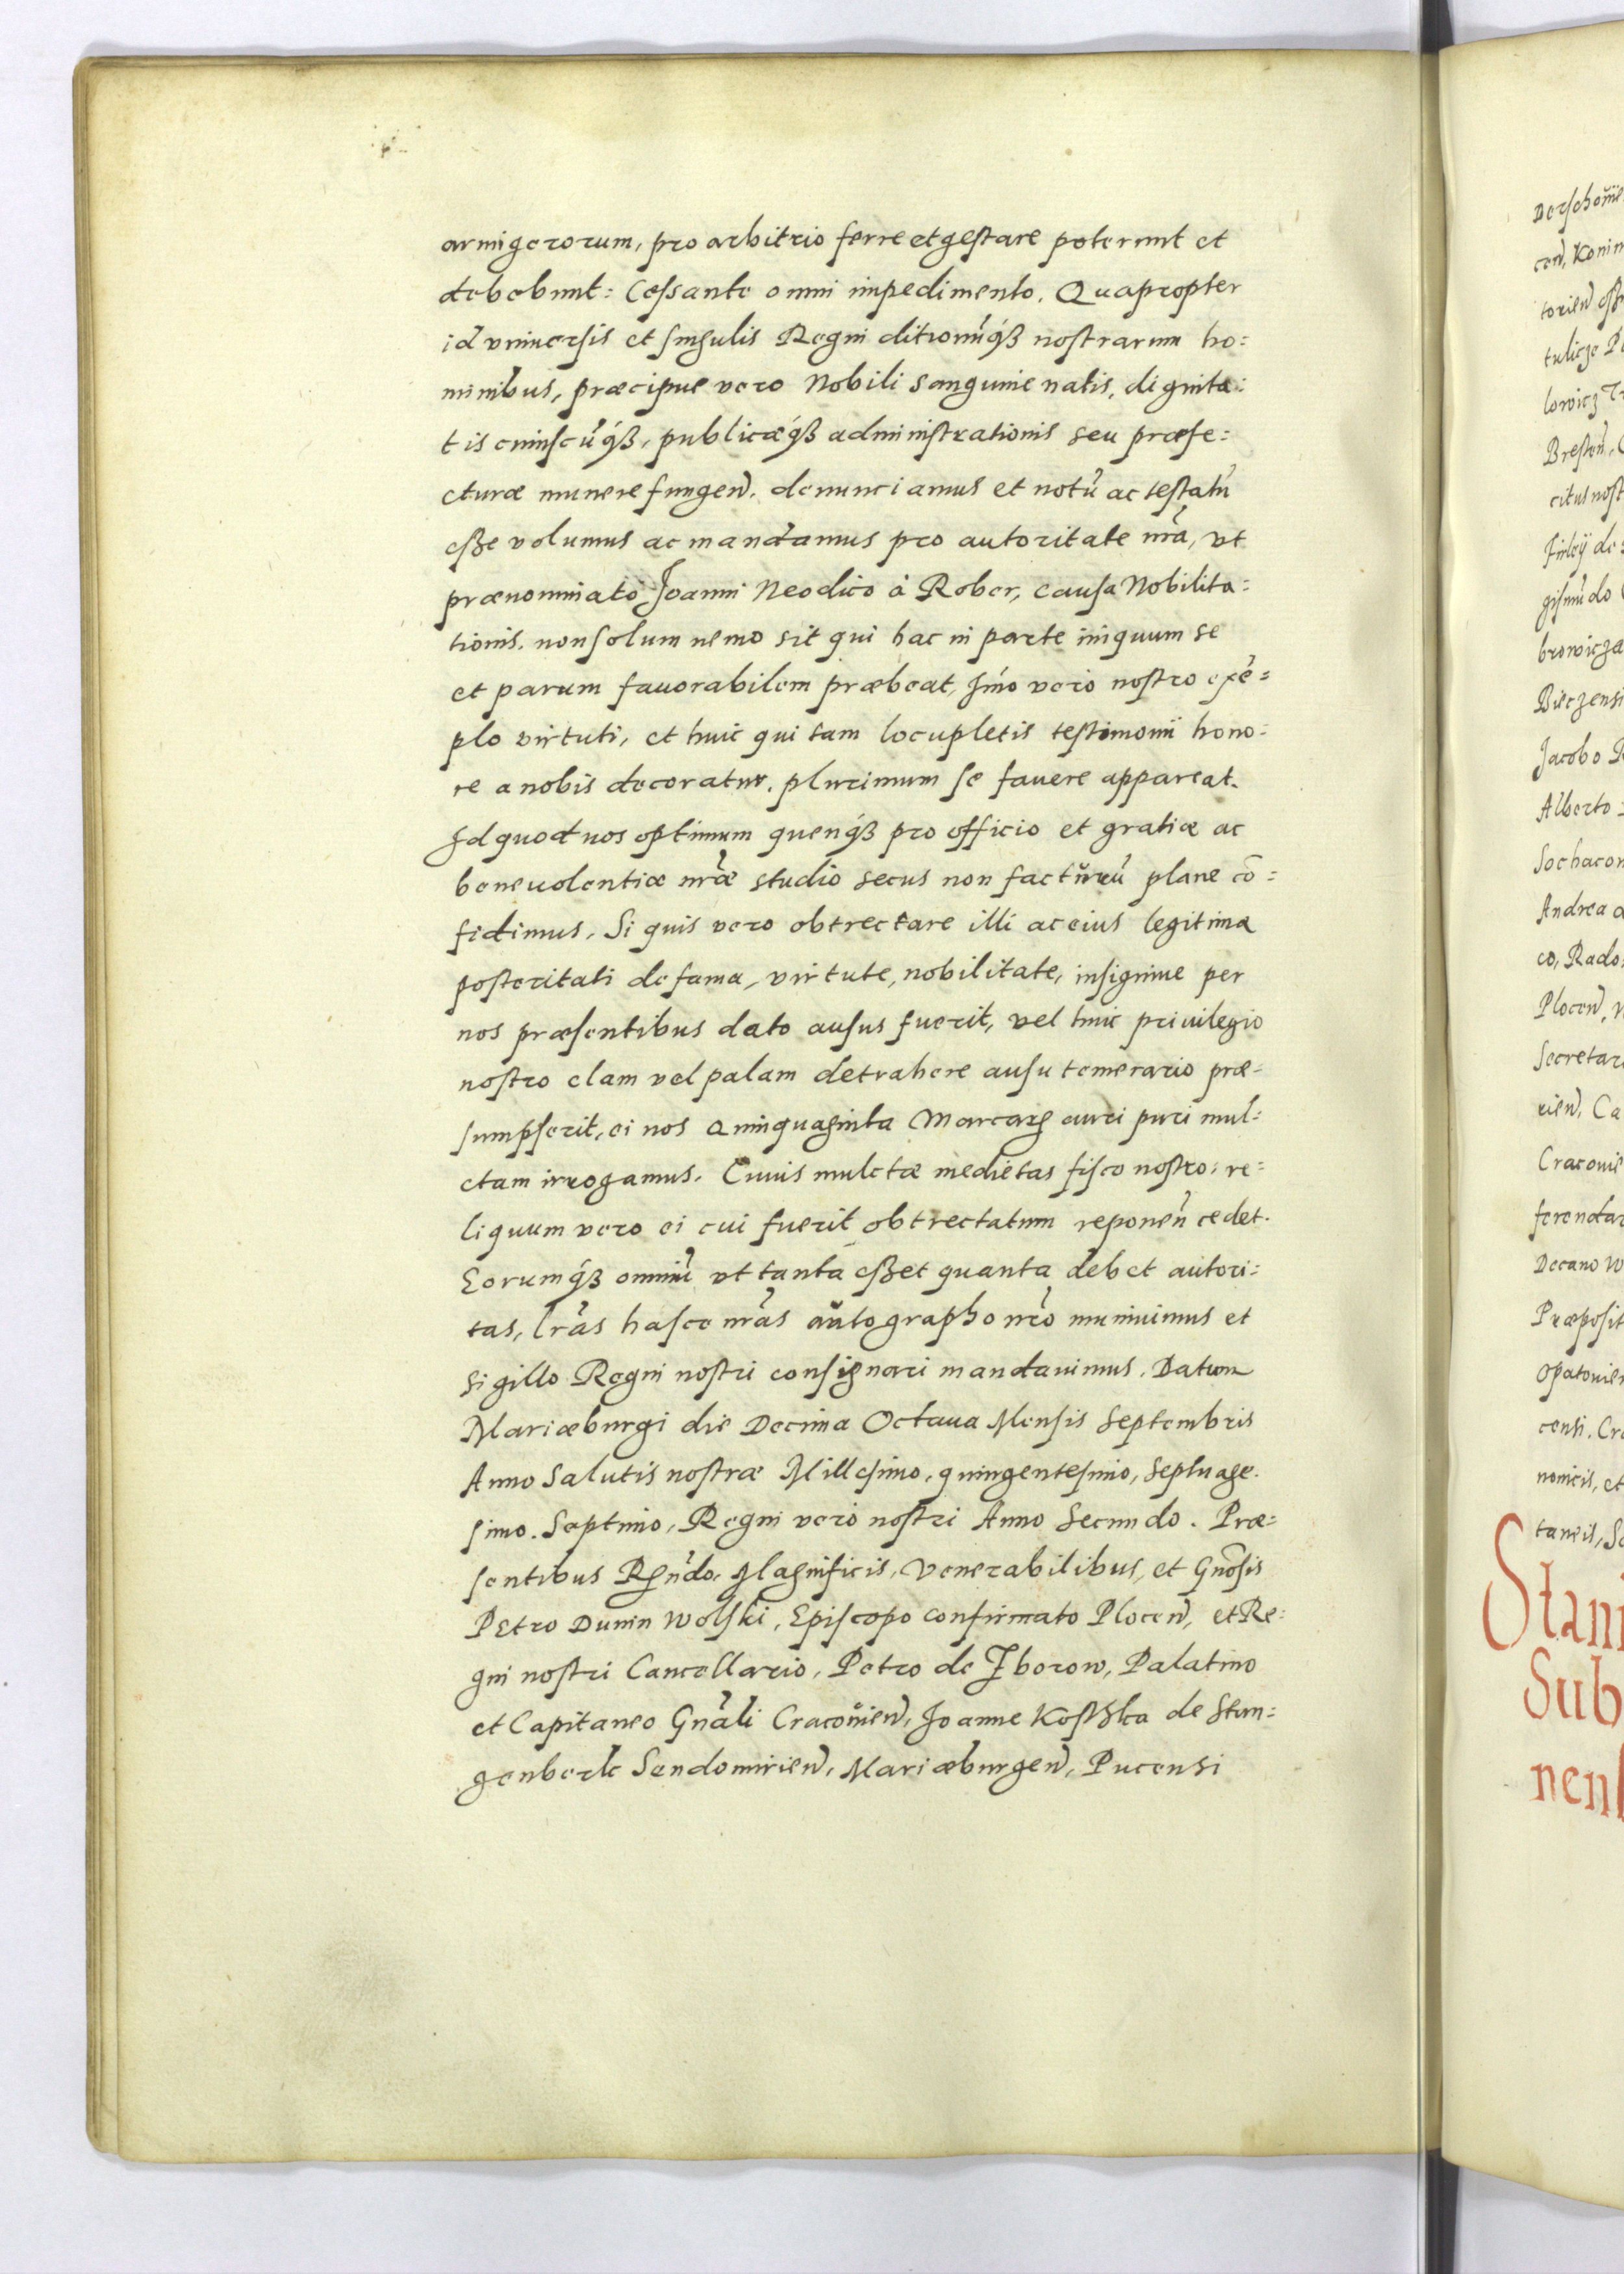 armigerorum, pro arbitrio ferre et gestare poterunt et
debebunt: Cessante omni impedimento. Quapropter
id vniuersis et singulis Regni ditionũq́ꝫ nostrarum ho:
minibus, præcipue vero Nobili sanguine natis, dignita:
tis cuiuscũq́ꝫ, publicæq́ꝫ administrationis seu præfe:
cturæ munere fungen̄. denunciamus et notũ ac testatũ
esse volumus ac mandamus pro autoritate nr̃a, vt
prænominato Joanni Neodico à Rober, causa Nobilita:
tionis. non solum nemo sit qui hac in parte iniquum se
et parum fauorabilem præbeat, Jm̃o vero nostro exẽ:
plo virtuti, et huic qui tam locupletis testimonii hono:
re a nobis decoratur. plurimum se fauere appareat.
Id quod nos optimum quenq́ꝫ pro officio et gratiæ ac
beneuolentiæ nr̃æ studio secus non facturũ plane cō:
fidimus. Si quis vero obtrectare illi ac eius legitima
posteritati de fama, virtute, nobilitate, insignique per
nos præsentibus dato ausus fuerit, vel huic priuilegio
nostro clam vel palam detrahere ausu temerario præ:
sumpserit, ei nos Quinquaginta Marcarꝫ auri puri mul:
ctam irrogamus. Cuius mulctæ medietas fisco nostro: re:
liquum vero ei cui fuerit obtrectatum reponen̄ cedet.
Eorumq́ꝫ omniũ vt tanta esset quanta debet autori:
tas, lr̃as hasce nr̃as autographo nr̃o muniuimus et
sigillo Regni nostri consignari mandauimus. Datum
Mariæburgi die Decima Octaua Mensis Septembris
Anno Salutis nostræ Millesimo, quingentesimo, Septuage.
simo. Septimo, Regni vero nostri Anno Secundo. Præ:
sentibus Rꝫndo, Magnificis, Venerabilibus, et Gñosis
Petro Dunin Wolski, Episcopo confirmato Plocen̄, et Re:
gni nostri Cancellario, Petro de Zborow, Palatino
et Capitaneo Gñali Cracouien̄, Joanne Kostka de Stan:
genberk Sendomirien̄, Mariæburgen̄, Pucensi
cen̄, Konin
Jacobo
Alberto
Andrea
Plocen̄,
Secretar
rien̄, Ca
Cracouie
ferendar
Decano W
Præposit
Opatouie
censi. Cr
nonicis, et
taneis, S
Stani
Sub
nens